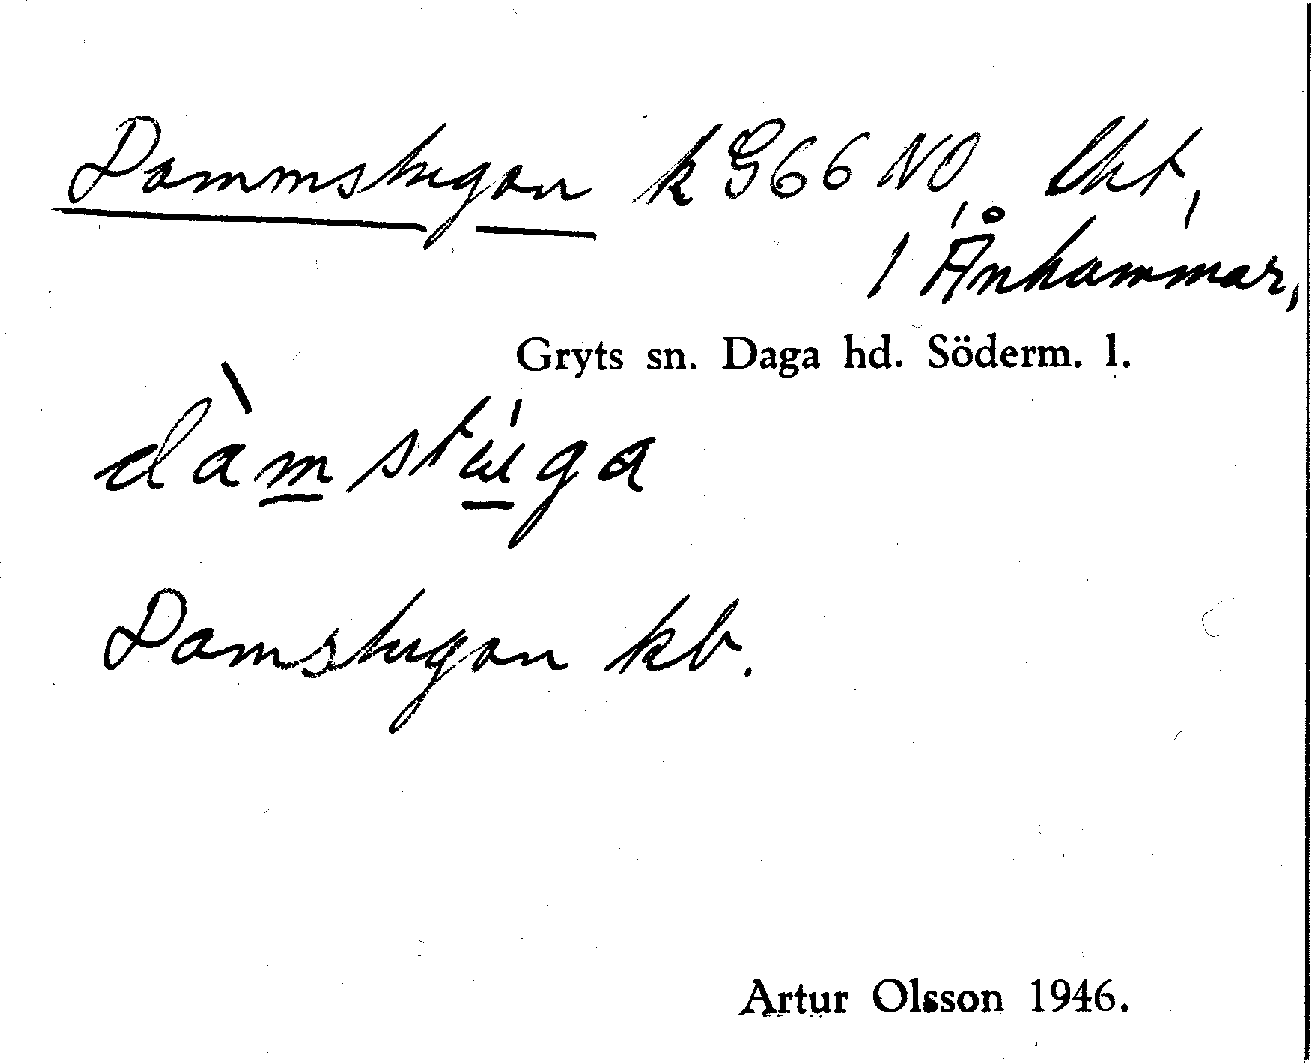 Dammstugan k G66 NO, lht,
1 Ånhammar,
Gryts sn. Daga hd. Söderm. l.
dàmstúga
Damstugan kb.
Artur Olsson 1946.